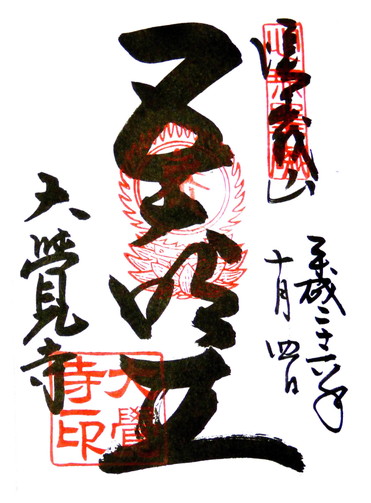 嵯峨山
平成二十六年
十月四日
五大明王
大覺寺
大覺
寺印